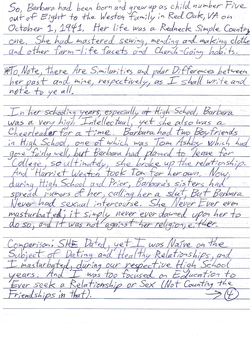 So, Barbara had been born and grew up as child number Five
out of Eight to the Weston Family in Red Oak, VA on
October 1, 1941. Her life was a Redneck Simple Country
one. She had mastered sewing, mending and making clothe
and other farm-life facets and Church-Going habits.
To Note, There Are Similarities and polar Differences between
Her past and mine, respectively, as I shall write and
note to ye all.
In her schooling years, especially at High School, Barbara
was a very high Intellectual, yet she also was a
Cheerleader for a time. Barbara had two Boyfriends
in High School, one of which was Tom Ashby which had
gone fairly well, but Barbara had planned to leave for
College, so ultimately, she broke up the relationship.
And Harriet Weston took Tom for her own. Now,
during High School and Prior, Barbara's sisters had
spread rumors of her, calling her a slut. But Barbara
Never had sexual intercourse. She Never Ever even
masturbated; it simply never ever dawned upon her to
do so, and it was not against her religion, either.
Comparison: SHE Dated, yet I was Naive on the
Subject of Dating and Healthy Relationships, and
I masturbated, during our respective High School
years. And I was too focused on Education to
Ever seek a Relationship or Sex (Not Counting the
Friendships in that).
4